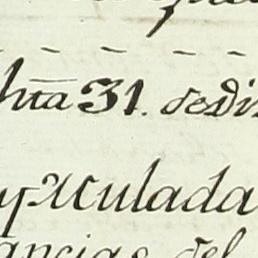 hta 31. de Di
yuculada
ancias del